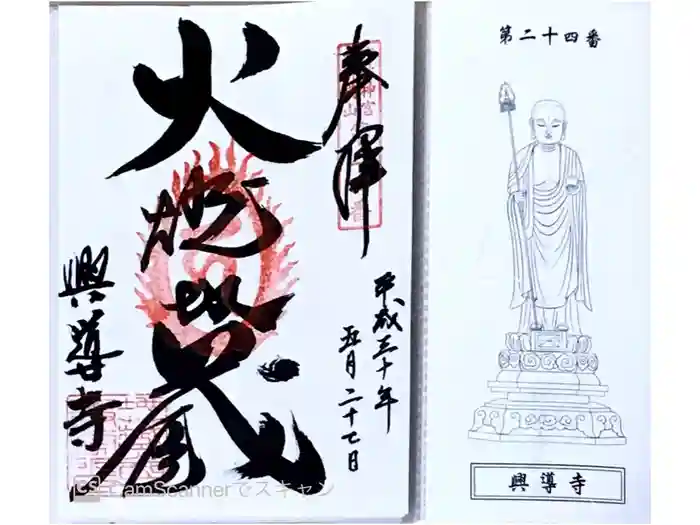 奉拝
火焼地蔵
平成三十年
五月二十七日
興導寺
CamScannerでスキャン
第二十四番
興導寺